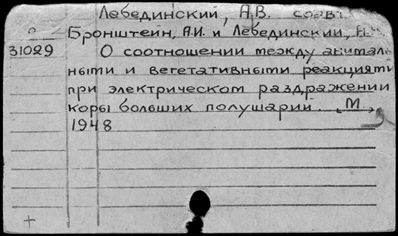 Лебединский, А.В. соавт.
Бронштейн, А.И. и Лебединский,
31029 О соотношении между анималь
ными и вегетативными реакциями
при электрическом раздражении
коры больших полушарий. М.,
1948